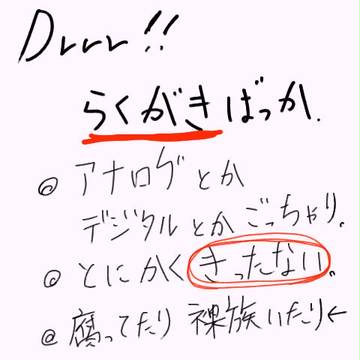 Drrr!!
らくがきばっか.
◎ アナログとか
デジタルとかごっちゃり。
◎ とにかくきったない。
◎ 腐ってたり裸族いたり←